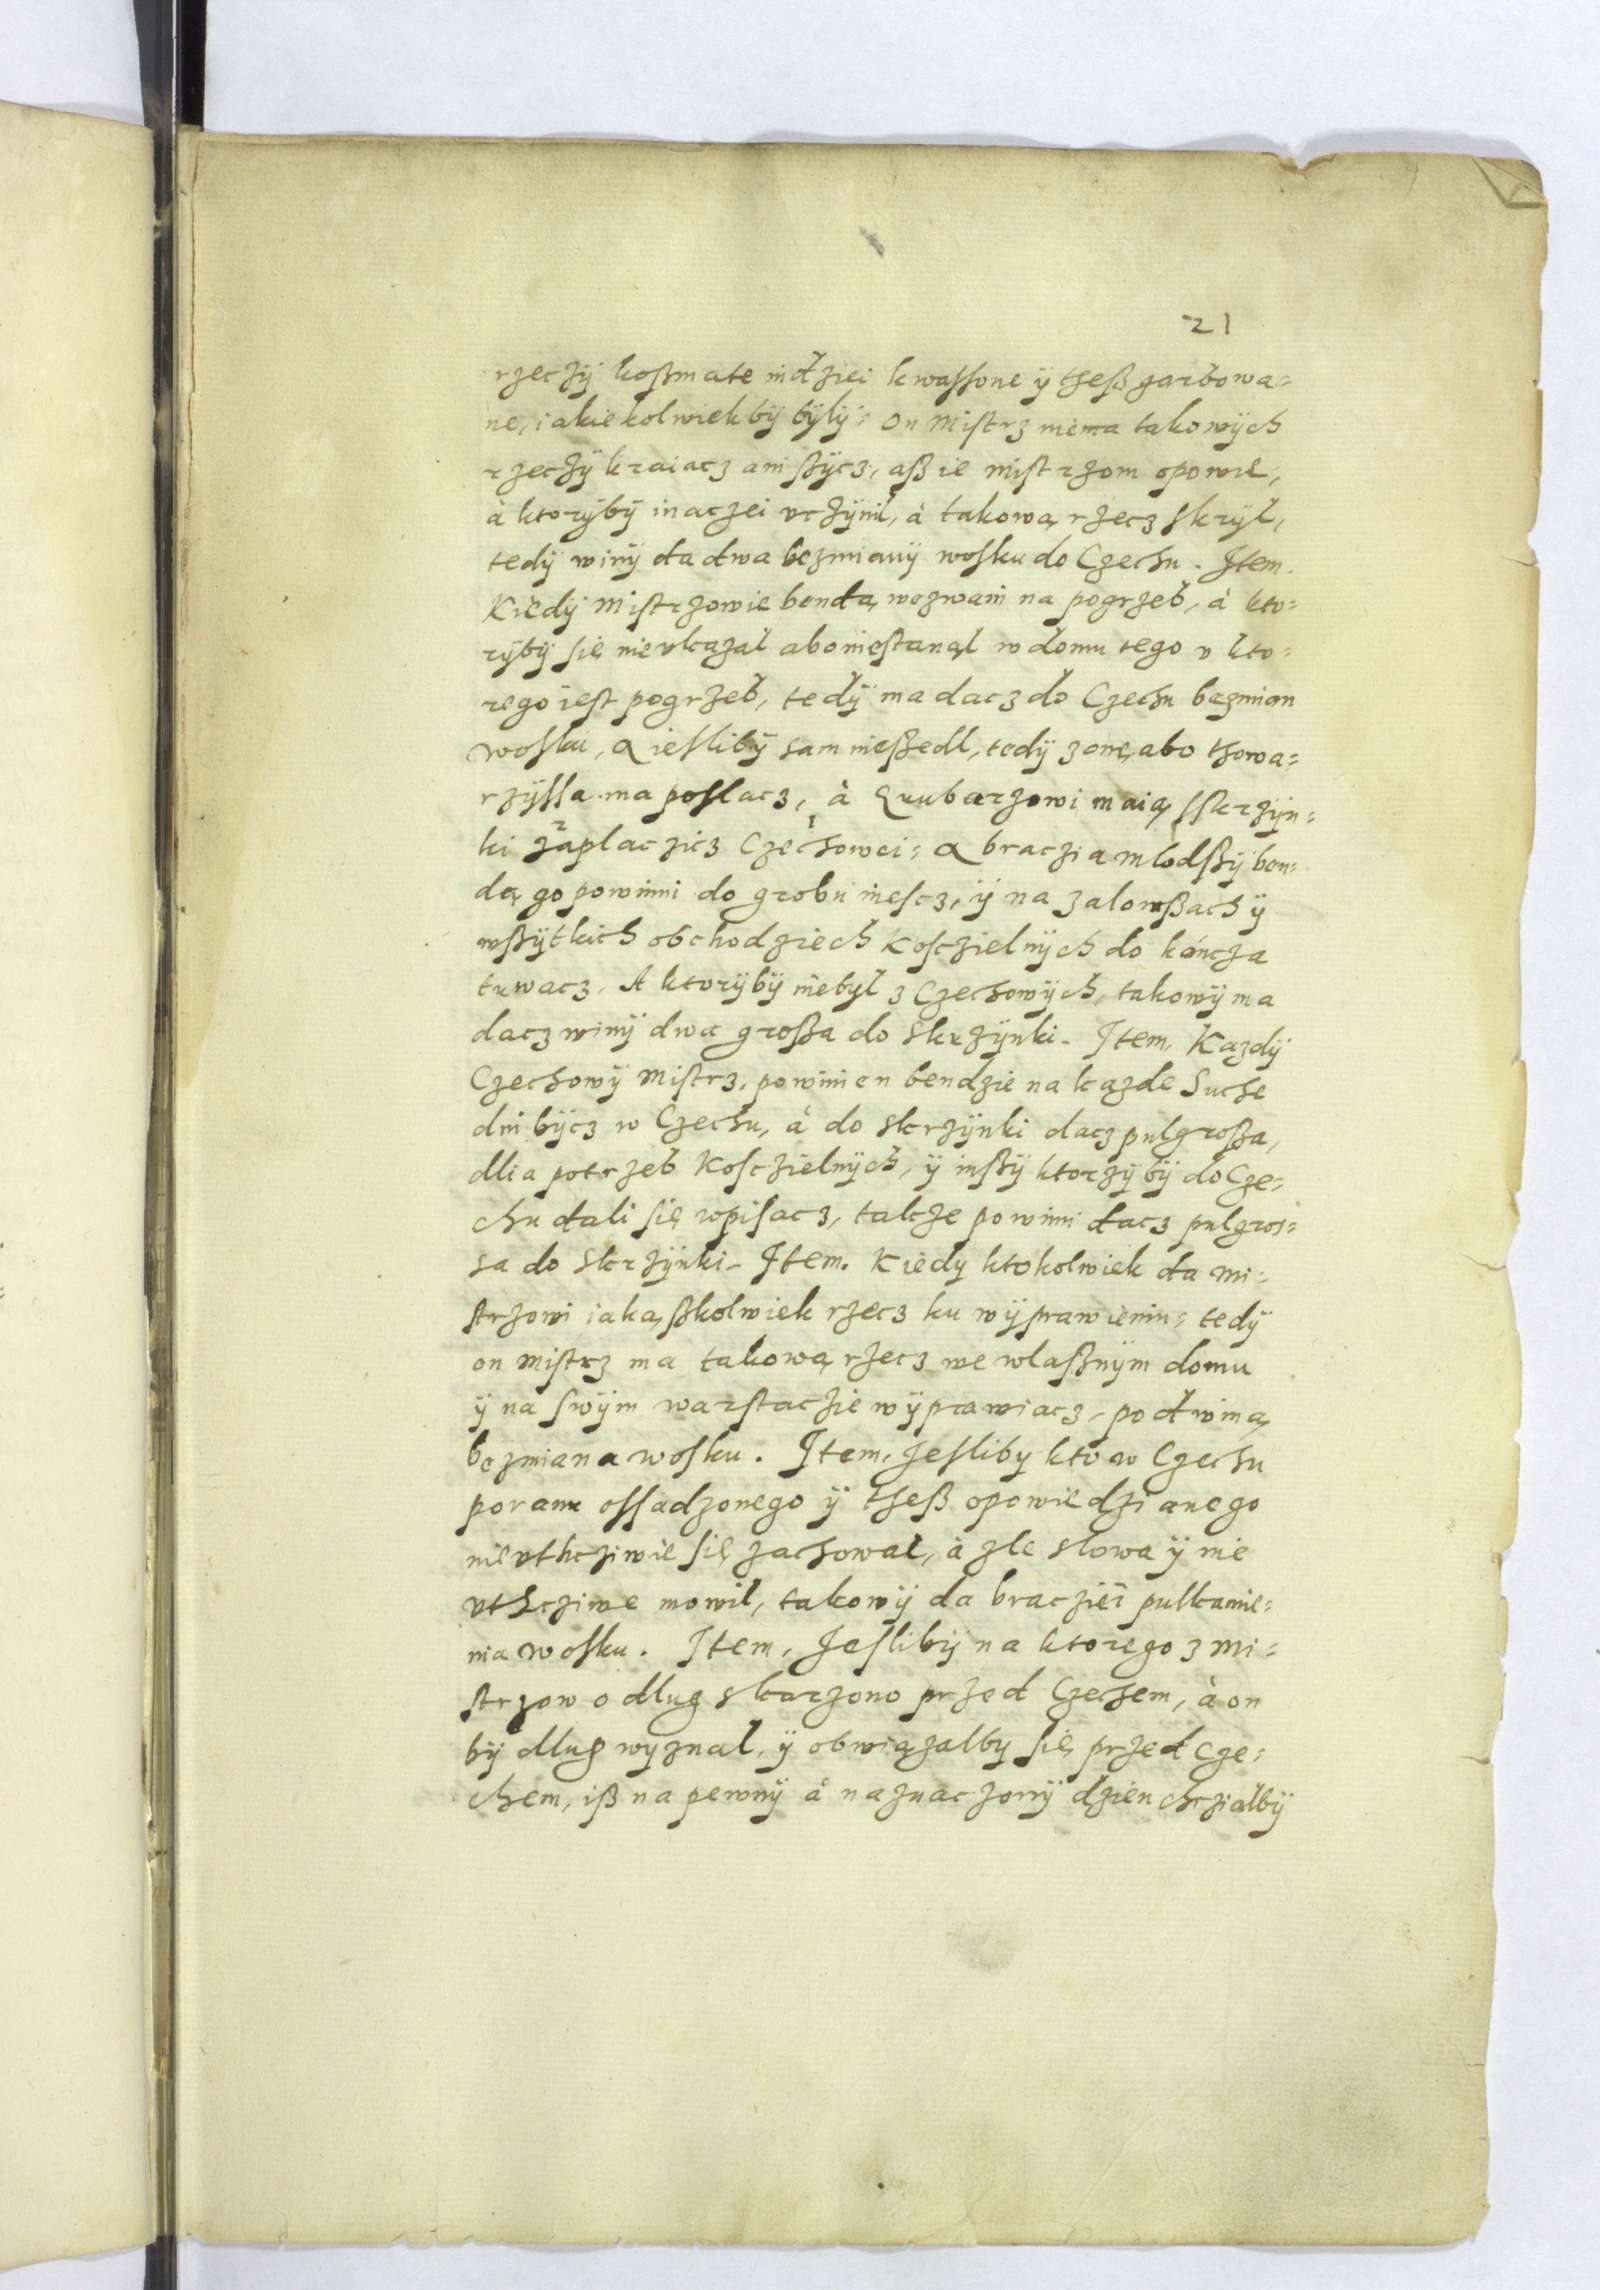 21
rzeczÿ koßmate indziei kwassone ÿ theß garbowa=
ne, iakiekolwiek bÿ bÿlÿ: On Mistrz niema takowÿch
rzeczÿ kraiacz ani ßÿcz, aß ie mistrzom opowie,
à ktorÿbÿ inaczei vczÿnil, à takową rzecz skrÿl,
tedÿ winÿ da dwa bezmianÿ wosku do Czechu. Item.
Kiedÿ Mistrzowie bendą wezwani na pogrzeb, à kto=
rÿbÿ się nie vkazal abo niestanąl w domu tego v kto=
rego iest pogrzeb, tedÿ ma dacz do Czechu bezmian
wosku, a iesliby sam nießedl, tedÿ zonę, abo thowa=
rzÿssa ma poslacz, à Grubarzowi maią sskrzÿn=
ki zaplaczicz Czechowei: a braczia mlodßÿ ben=
dą go powinni do grobu niescz, ÿ na zalomßach ÿ
wßÿtkich obchodziech Kosczielnÿch do koncza
trwacz. A ktorÿbÿ niebyl z Czechowÿch, takowÿ ma
dacz winÿ dwa großa do Skrzÿnki. Item, Kazdÿ
Czechowÿ Mistrz, powinien bendzie na kazde Suche
dni bÿcz w Czechu, à do skrzÿnki dacz pulgroßa,
dlia potrzeb Kosczielnÿch, ÿ inßÿ ktorzÿbÿ do Cze=
chu dali się wpisacz, takze powinni dacz pulgros=
sa do skrzÿnki. Item. Kiedy ktokolwiek da Mi=
strzowi iakąßkolwiek rzecz ku wÿprawieniu: tedÿ
on Mistrz ma takową rzecz we wlaßnÿm domu
ÿ na swÿm warstaczie wÿprawiacz, pod winą
bezmiana wosku. Item, Jesliby kto w Czechu
poranu ossadzonego ÿ theß opowiedzianego
nie vthcziwie się zachowal, à zle slowa ÿ nie
vthcziwe mowil, takowÿ da braczieÿ pulkamie=
nia wosku. Item, Jeslibÿ na ktorego z Mi=
strzow o dlug skarzono przed Czechem, à on
bÿ dlug wyznal, ÿ obwiązalby się przed Cze=
chem, iß na pewnÿ à naznaczonÿ dzien chczialbÿ